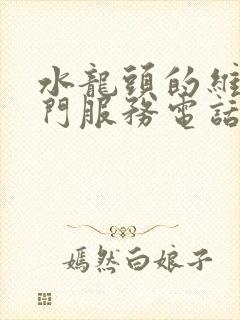 水龍頭的維
門服務電話
嫣然白娘子